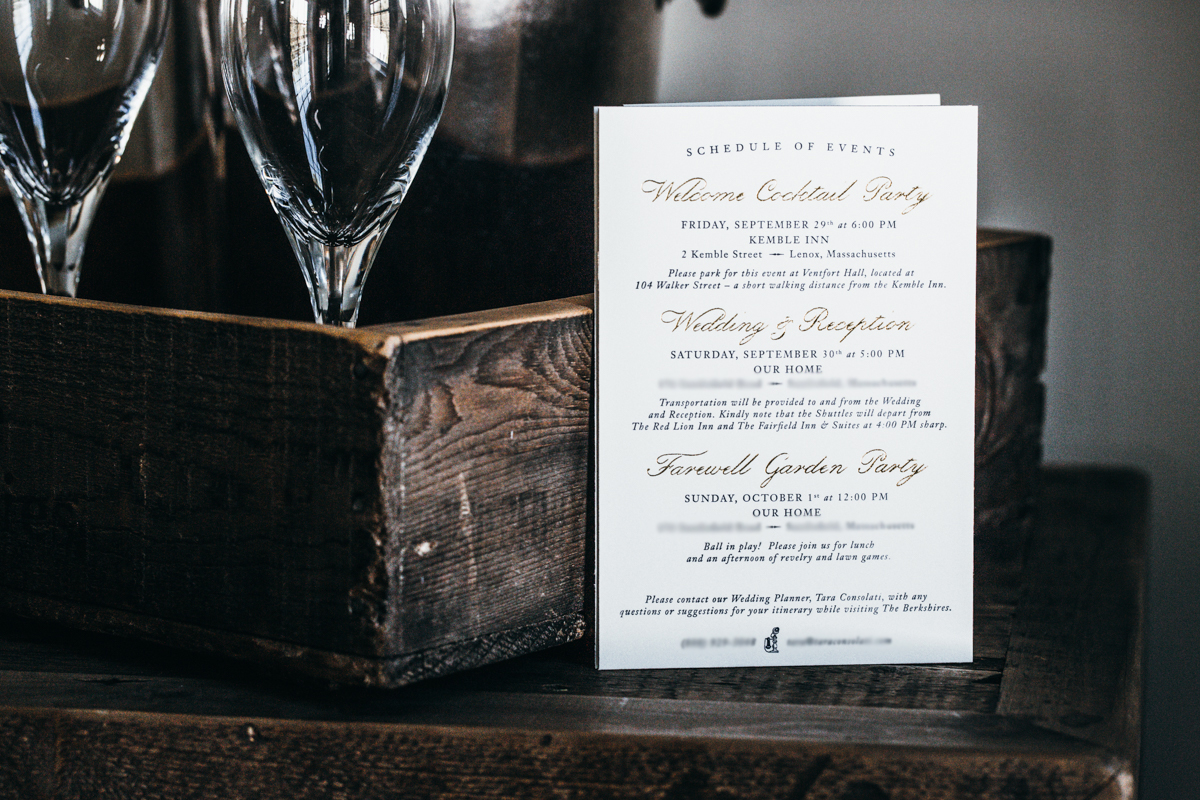 SCHEDULE OF EVENTS
Welcome Cocktail Party
FRIDAY, SEPTEMBER 29th at 6:00 PM
KEMBLE INN
2 Kemble Street — Lenox, Massachusetts
Please park for this event at Ventfort Hall, located at
104 Walker Street – a short walking distance from the Kemble Inn.
Wedding & Reception
SATURDAY, SEPTEMBER 30th at 5:00 PM
OUR HOME
Transportation will be provided to and from the Wedding
and Reception. Kindly note that the Shuttles will depart from
The Red Lion Inn and The Fairfield Inn & Suites at 4:00 PM sharp.
Farewell Garden Party
SUNDAY, OCTOBER 1st at 12:00 PM
OUR HOME
Ball in play! Please join us for lunch
and an afternoon of revelry and lawn games.
Please contact our Wedding Planner, Tara Consolati, with any
questions or suggestions for your itinerary while visiting The Berkshires.